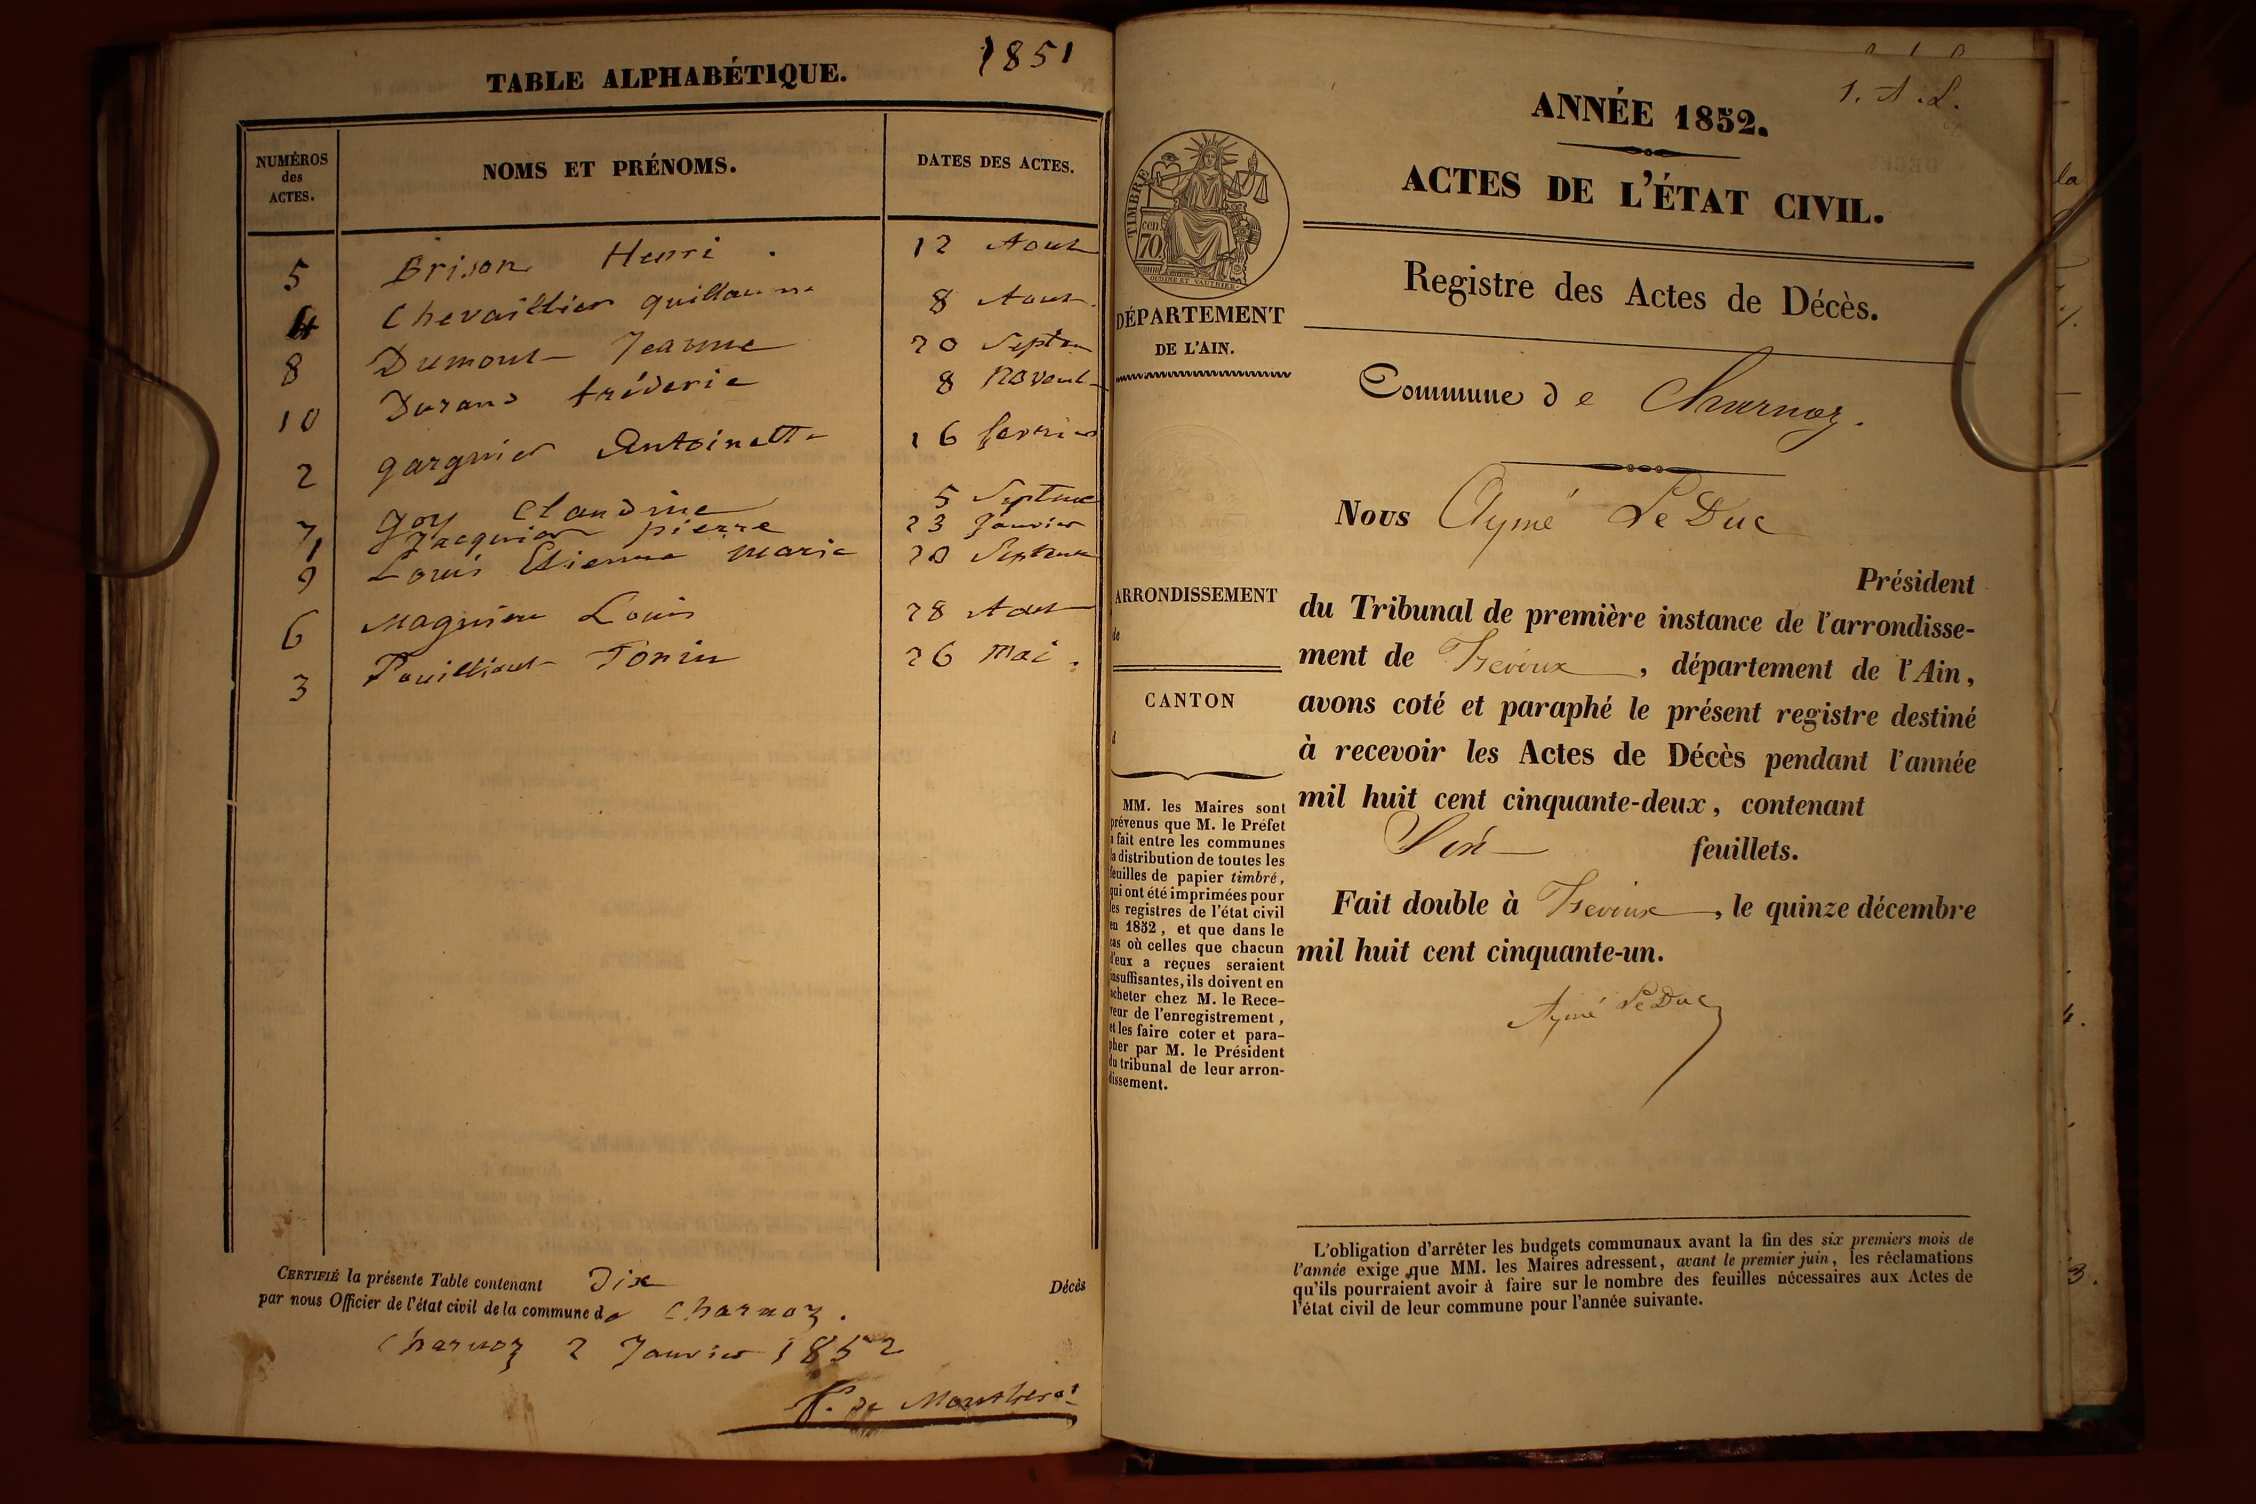 1851
TABLE ALPHABÉTIQUE.
NUMÉROS des ACTES. NOMS ET PRÉNOMS. DATES DES ACTES.
5 Brison Henri 12 Aout
4 Chevaillier guillaume 8 Aout
8 Dumont Jeanne 20 Septem
10 Durand fréderic 8 Novem
2 garguier Antoinette 16 fevrier
7 goy Claudine 5 Septem
1 Jacquier pierre 23 Janvier
9 Louis Etienne Marie 20 Septem
6 Magnien Louis 28 Aout
3 26 Mai
CERTIFIÉ la présente Table contenant Dix Décès
par nous Officier de l'état civil de la commune de Charnoz.
Charnoz 2 Janvier 1852
1. A. L.
ANNÉE 1852.
ACTES DE L'ÉTAT CIVIL.
Registre des Actes de Décès.
Commune de Charnoz.
TIMBRE
70
DÉPARTEMENT
DE L'AIN.
ARRONDISSEMENT
de
CANTON
d
MM. les Maires sont
prévenus que M. le Préfet
a fait entre les communes
la distribution de toutes les
feuilles de papier timbré,
qui ont été imprimées pour
les registres de l'état civil
en 1852, et que dans le
cas où celles que chacun
d'eux a reçues seraient
insuffisantes, ils doivent en
acheter chez M. le Rece-
veur de l'enregistrement,
et les faire coter et para-
pher par M. le Président
du tribunal de leur arron-
dissement.
Nous Aymé Le Duc
Président
du Tribunal de première instance de l'arrondisse-
ment de Trévoux, département de l'Ain,
avons coté et paraphé le présent registre destiné
à recevoir les Actes de Décès pendant l'année
mil huit cent cinquante-deux, contenant
Six feuillets.
Fait double à Trévoux, le quinze décembre
mil huit cent cinquante-un.
Aymé Le Duc
L'obligation d'arrêter les budgets communaux avant la fin des six premiers mois de
l'année exige que MM. les Maires adressent, avant le premier juin, les réclamations
qu'ils pourraient avoir à faire sur le nombre des feuilles nécessaires aux Actes de
l'état civil de leur commune pour l'année suivante.